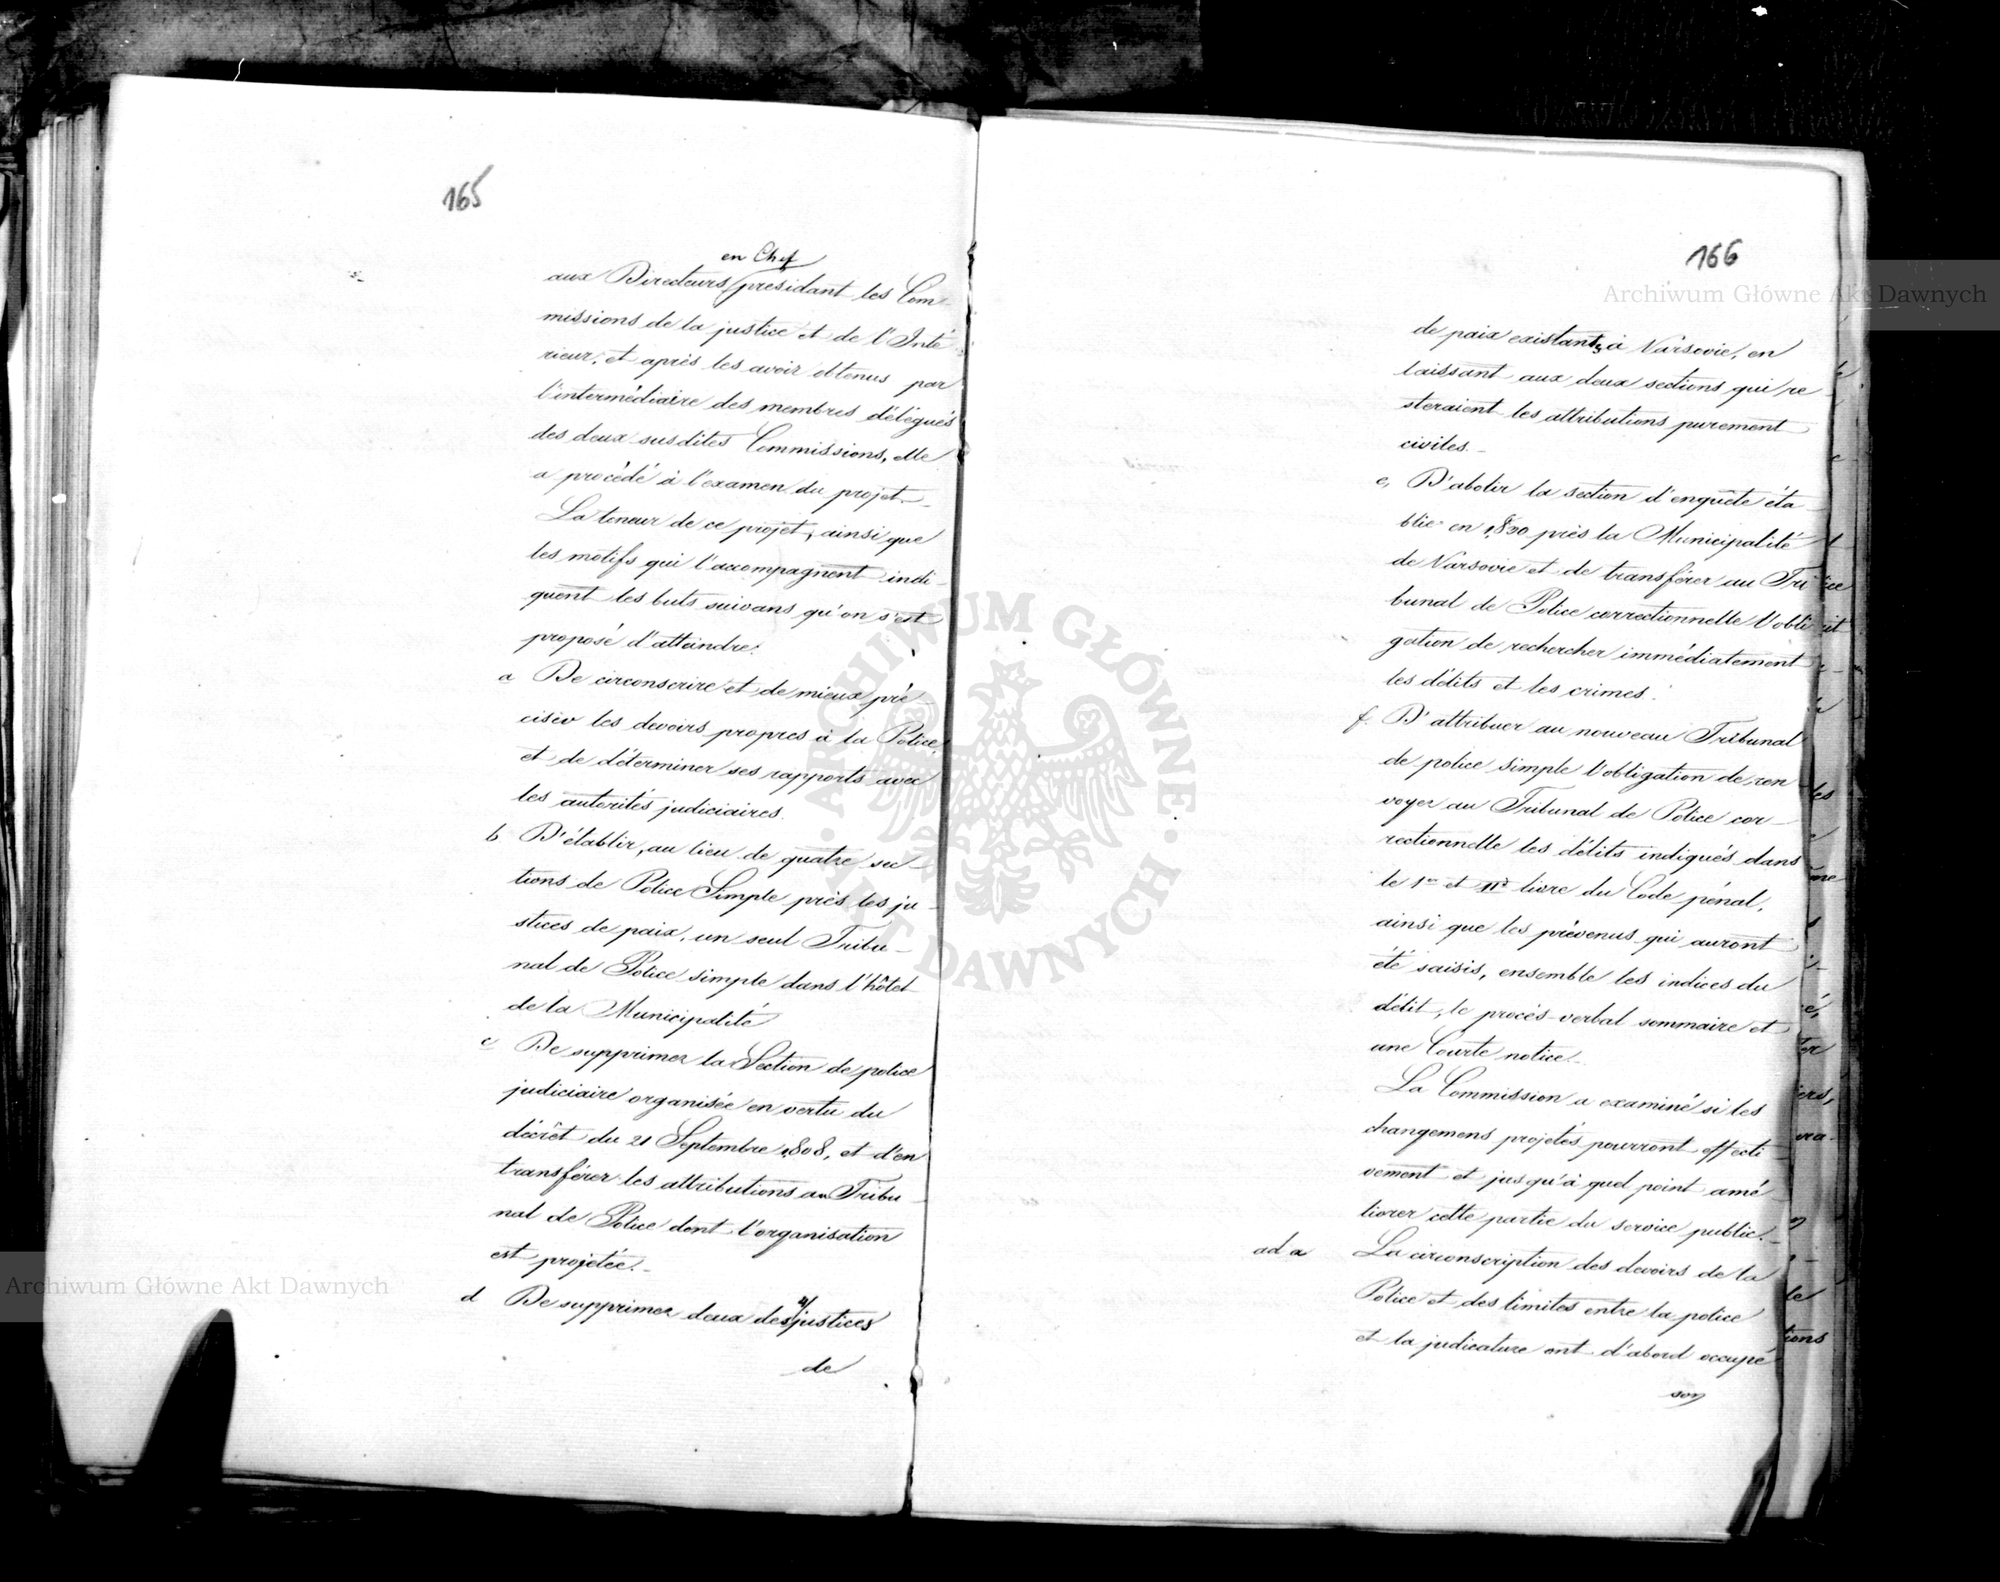 165
en Chef
aux Directeurs présidant les Com-
missions de la justice et de l'Inté-
rieur, et après les avoir obtenus par
l'intermédiaire des membres délégués
des deux susdites Commissions, elle
a procédé à l'examen du projet.-
La teneur de ce projet, ainsi que
les motifs qui l'accompagnent indi-
quent les buts suivans qu'on s'est
proposé d'atteindre:
a De circonscrire et de mieux pré-
ciser les devoirs propres à la Police,
et de déterminer ses rapports avec
les autorités judiciaires.
b D'établir, au lieu de quatre sec-
tions de Police Simple près les ju-
stices de paix, un seul Tribu-
nal de Police simple dans l'hôtel
de la Municipalité
c De supprimer la Section de police
judiciaire organisée en vertu du
décrêt du 21 Septembre 1808, et d'en
transférer les attributions au Tribu-
nal de Police dont l'organisation
est projetée.-
d De supprimer deux des 4 justices
de
166
de paix existants à Varsovie, en
laissant aux deux sections qui re-
steraient les attributions purement
civiles.-
e, D'abolir la section d'enquête éta-
blie en 1830 près la Municipalité
de Varsovie et de transférer au Tri-
bunal de Police correctionnelle l'obli-
gation de rechercher immédiatement
les délits et les crimes.
f. D'attribuer au nouveau Tribunal
de police simple l'obligation de ren-
voyer au Tribunal de Police cor-
rectionnelle les délits indiqués dans
le 1er et IId livre du Code pénal,
ainsi que les prévenus qui auront
été saisis, ensemble les indices du
délit, le procès-verbal sommaire et
une Courte notice.-
La Commission a examiné si les
changemens projetés pourront effecti-
vement et jusqu'à quel point amé-
liorer cette partie du service public.-
ad a La circonscription des devoirs de la
Police et des limites entre la police
et la judicature ont d'abord occupé
son
Archiwum Główne Akt Dawnych
Archiwum Główne Akt Dawnych
ARCHIWUM GŁÓWNE AKT DAWNYCH